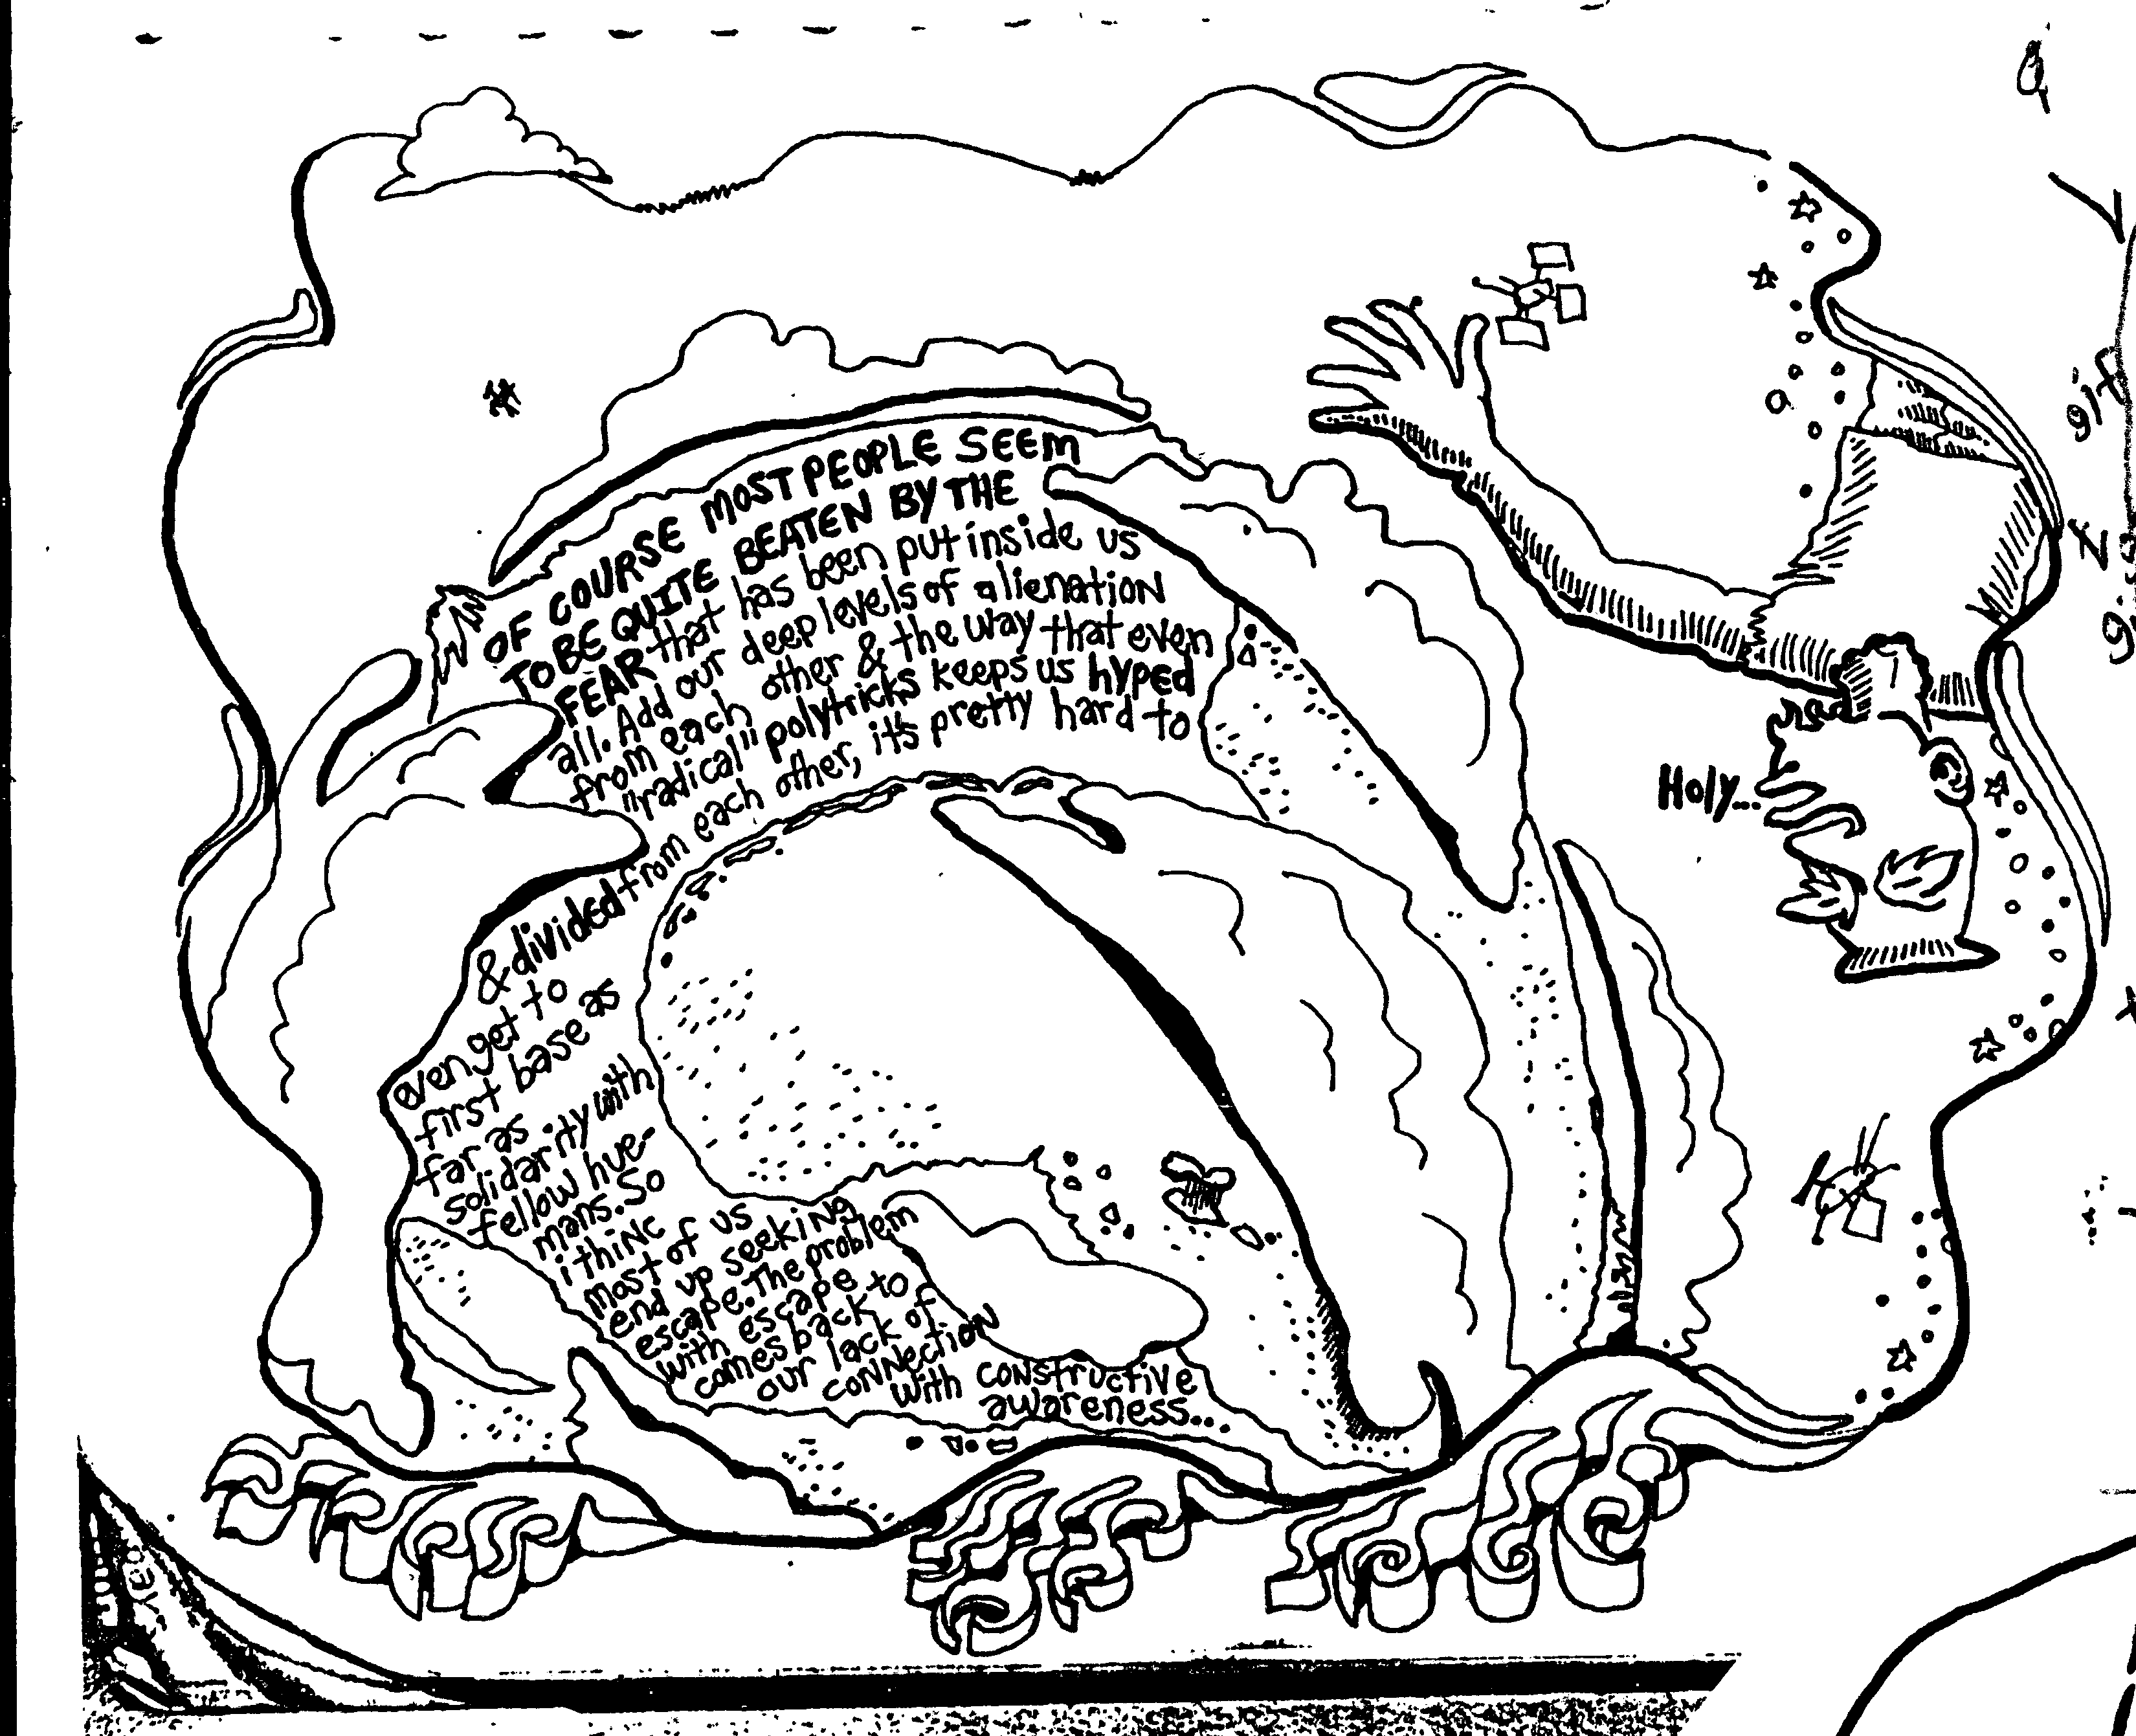 OF COURSE MOST PEOPLE SEEM
TO BE QUITE BEATEN BY THE
FEAR that has been put inside us
all. Add our deep levels of alienation
from each other & the way that even
"radical" polytricks keeps us hyped
& divided from each other, it's pretty hard to
even get to
first base as
far as
solidarity with
fellow hue-
mans. So
i thinc
most of us
end up seeking
escape. The problem
with escape
comes back to
our lack of
connection
with constructive
awareness...
Holy...